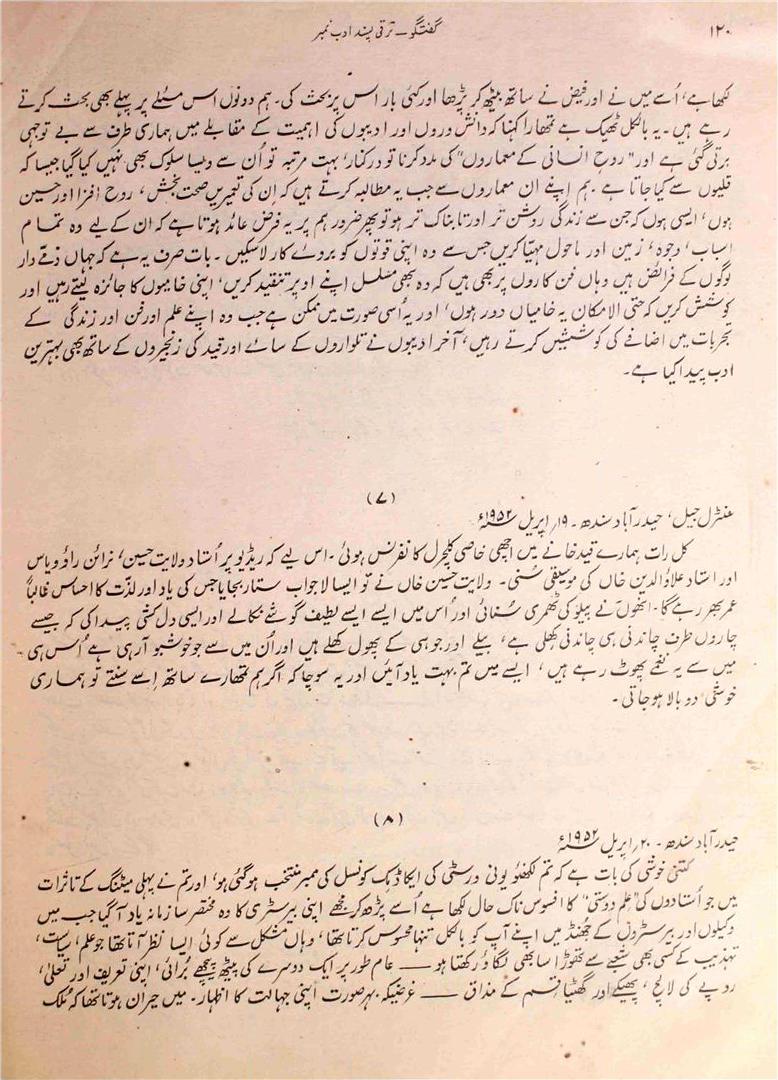 ۱۲۰
گفتگو ۔ ترقی پسند ادب نمبر
لکھا ہے، اُسے میں نے اور فیض نے ساتھ بیٹھ کر پڑھا اور کئی بار اس پر بحث کی۔ ہم دونوں اس مسئلے پر پہلے بھی بحث کرتے
رہے ہیں۔ یہ بالکل ٹھیک ہے تمھارا کہنا کہ دانش وروں اور ادیبوں کی اہمیت کے مقابلے میں ہماری طرف سے بے توجہی
برتی گئی ہے اور "روحِ انسانی کے معماروں" کی مدد کرنا تو درکنار، بہت مرتبہ تو اُن سے ویسا سلوک بھی نہیں کیا گیا جیسا کہ
قلیوں سے کیا جاتا ہے۔ ہم اپنے ان معماروں سے جب یہ مطالبہ کرتے ہیں کہ اِن کی تعمیریں صحت بخش، روح افزا اور حسین
ہوں، ایسی ہوں کہ جن سے زندگی روشن تر اور تابناک تر ہو تو پھر ضرور ہم پر یہ فرض عائد ہوتا ہے کہ ان کے لیے وہ تمام
اسباب، وجوہ، زمین اور ماحول مہیّا کریں جس سے وہ اپنی قوتوں کو بروئے کار لا سکیں۔ بات صرف یہ ہے کہ جہاں ذمّے دار
لوگوں کے فرائض ہیں وہاں فن کاروں پر بھی ہیں کہ وہ بھی مسلسل اپنے اوپر تنقید کریں، اپنی خامیوں کا جائزہ لیتے رہیں اور
کوشش کریں کہ حتی الامکان یہ خامیاں دور ہوں، اور یہ اُسی صورت میں ممکن ہے جب وہ اپنے علم اور فن اور زندگی کے
تجربات میں اضافے کی کوششیں کرتے رہیں، آخر ادیبوں نے تلواروں کے سائے اور قید کی زنجیروں کے ساتھ بھی بہترین
ادب پیدا کیا ہے۔
(۷)
سنٹرل جیل، حیدرآباد سندھ ۔ ۱۹ اپریل ۱۹۵۲ء
کل رات ہمارے قید خانے میں اچھی خاصی کلچرل کانفرنس ہوئی۔ اس لیے کہ ریڈیو پر اُستاد ولایت حسین، نرائن راؤ ویاس
اور استاد علاؤالدین خاں کی موسیقی سُنی۔ ولایت حسین خاں نے تو ایسا لاجواب ستار بجایا جس کی یاد اور لذّت کا احساس غالباً
عمر بھر رہے گا۔ انھوں نے پیلو کی ٹھمری سُنائی اور اُس میں ایسے ایسے لطیف گوشے نکالے اور ایسی دل کشی پیدا کی کہ جیسے
چاروں طرف چاندنی ہی چاندنی کھلی ہے، بیلے اور جوہی کے پھول کھلے ہیں اور اُن میں سے جو خوشبو آرہی ہے اُس ہی
میں سے یہ نغمے پھوٹ رہے ہیں، ایسے میں تم بہت یاد آئیں اور یہ سوچا کہ اگر ہم تمھارے ساتھ اِسے سنتے تو ہماری
خوشی دوبالا ہو جاتی۔
(۸)
حیدرآباد سندھ ۔ ۲۰ اپریل ۱۹۵۲ء
کتنی خوشی کی بات ہے کہ تم لکھنؤ یونی ورسٹی کی ایکاڈمک کونسل کی ممبر منتخب ہو گئی ہو، اور تم نے پہلی میٹنگ کے تاثرات
میں جو اُستادوں کی "علم دوستی" کا افسوس ناک حال لکھا ہے اُسے پڑھ کر مجھے اپنی بیرسٹری کا وہ مختصر سا زمانہ یاد آگیا جب میں
وکیلوں اور بیرسٹروں کے جھُنڈ میں اپنے آپ کو بالکل تنہا محسوس کرتا تھا، وہاں مشکل سے کوئی ایسا نظر آتا تھا جو علم، سیاست،
تہذیب کے کسی بھی شعبے سے تھوڑا سا بھی لگاؤ رکھتا ہو — عام طور پر ایک دوسرے کی پیٹھ پیچھے بُرائی، اپنی تعریف اور تعلّی،
روپے کی لالچ، پھیکے اور گھٹیا قسم کے مذاق — غرضیکہ بہر صورت اپنی جہالت کا اظہار۔ میں حیران ہوتا تھا کہ مُلک